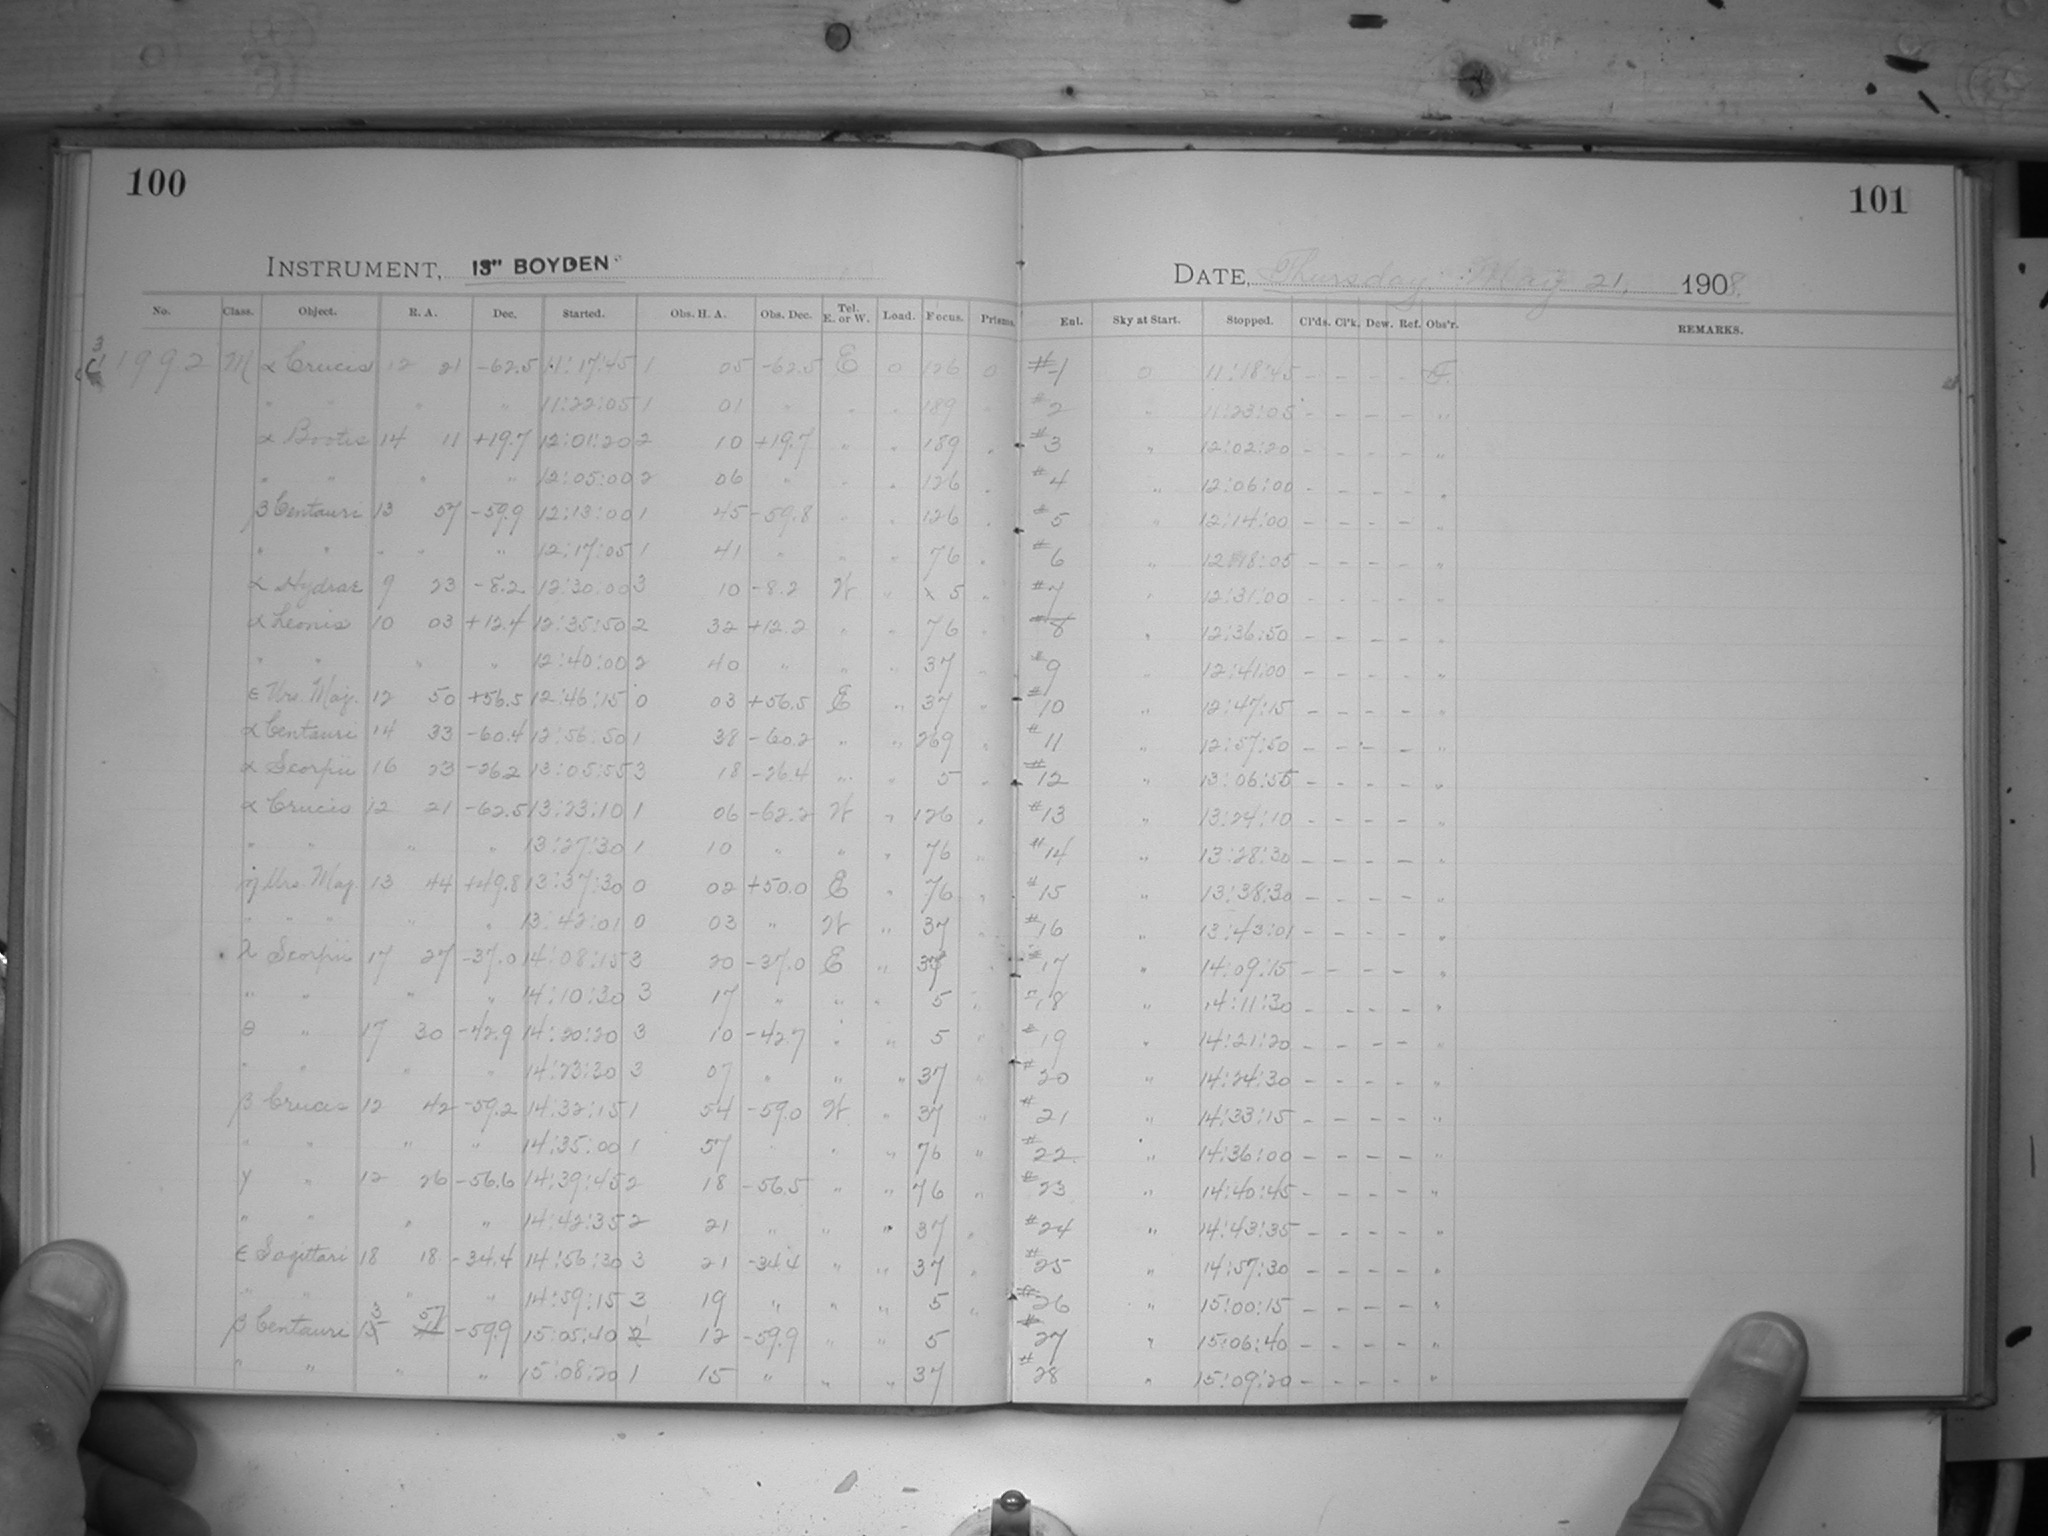 100
101
INSTRUMENT, 13" BOYDEN
DATE, Thursday, May 21, 1908.
No. Class. Object. R. A. Dec. Started. Obs. H. A. Obs. Dec. Tel. E. or W. Load. Focus. Prisms. Enl. Sky at Start. Stopped. Cl'ds. Cl'k. Dew. Ref. Obs'r. REMARKS.
C 3 1992 M α Crucis 12 21 -62.5 11:17:45 1 05 -62.5 E 0 126 0 #1 0 11:18:45 - - - - F.
" " " " 11:22:05 1 01 " " " 189 " #2 " 11:23:05 - - - - "
α Bootis 14 11 +19.7 12:01:20 2 10 +19.7 " " 189 " #3 " 12:02:20 - - - - "
" " " " 12:05:00 2 06 " " " 126 " #4 " 12:06:00 - - - - "
β Centauri 13 57 -59.9 12:13:00 1 45 -59.8 " " 126 " #5 " 12:14:00 - - - - "
" " " " " 12:17:05 1 41 " " " 76 " #6 " 12:18:05 - - - - "
α Hydrae 9 23 -8.2 12:30:00 3 10 -8.2 W " x 5 " #7 " 12:31:00 - - - - "
α Leonis 10 03 +12.4 12:35:50 2 32 +12.2 " " 76 " #8 " 12:36:50 - - - - "
" " " " 12:40:00 2 40 " " " 37 " #9 " 12:41:00 - - - - "
ε Urs. Maj. 12 50 +56.5 12:46:15 0 03 +56.5 E " 37 " #10 " 12:47:15 - - - - "
α Centauri 14 33 -60.4 12:56:50 1 38 -60.2 " " 269 " #11 " 12:57:50 - - - - "
α Scorpii 16 23 -26.2 13:05:55 3 18 -26.4 " " 5 " #12 " 13:06:55 - - - - "
α Crucis 12 21 -62.5 13:23:10 1 06 -62.2 W " 126 " #13 " 13:24:10 - - - - "
" " " " 13:27:30 1 10 " " " 76 " #14 " 13:28:30 - - - - "
η Urs. Maj. 13 44 +49.8 13:37:30 0 02 +50.0 E " 76 " #15 " 13:38:30 - - - - "
" " " " " 13:42:01 0 03 " W " 37 " #16 " 13:43:01 - - - - "
λ Scorpii 17 27 -37.0 14:08:15 3 20 -37.0 E " 37 " #17 " 14:09:15 - - - - "
" " " " 14:10:30 3 17 " " " 5 " #18 " 14:11:30 - - - - "
θ " 17 30 -42.9 14:20:20 3 10 -42.7 " " 5 " #19 " 14:21:20 - - - - "
" " " " 14:23:30 3 07 " " " 37 " #20 " 14:24:30 - - - - "
β Crucis 12 42 -59.2 14:32:15 1 54 -59.0 W " 37 " #21 " 14:33:15 - - - - "
" " " " 14:35:00 1 57 " " " 76 " #22 " 14:36:00 - - - - "
γ " 12 26 -56.6 14:39:45 2 18 -56.5 " " 76 " #23 " 14:40:45 - - - - "
" " " " 14:42:35 2 21 " " " 37 " #24 " 14:43:35 - - - - "
ε Sagittari 18 18 -34.4 14:56:30 3 21 -34.4 " " 37 " #25 " 14:57:30 - - - - "
" " " " 14:59:15 3 19 " " " 5 " #26 " 15:00:15 - - - - "
β Centauri 13 57 -59.9 15:05:40 1 12 -59.9 " " 5 #27 " 15:06:40 - - - - "
" " " " 15:08:20 1 15 " " " 37 #28 " 15:09:20 - - - - "